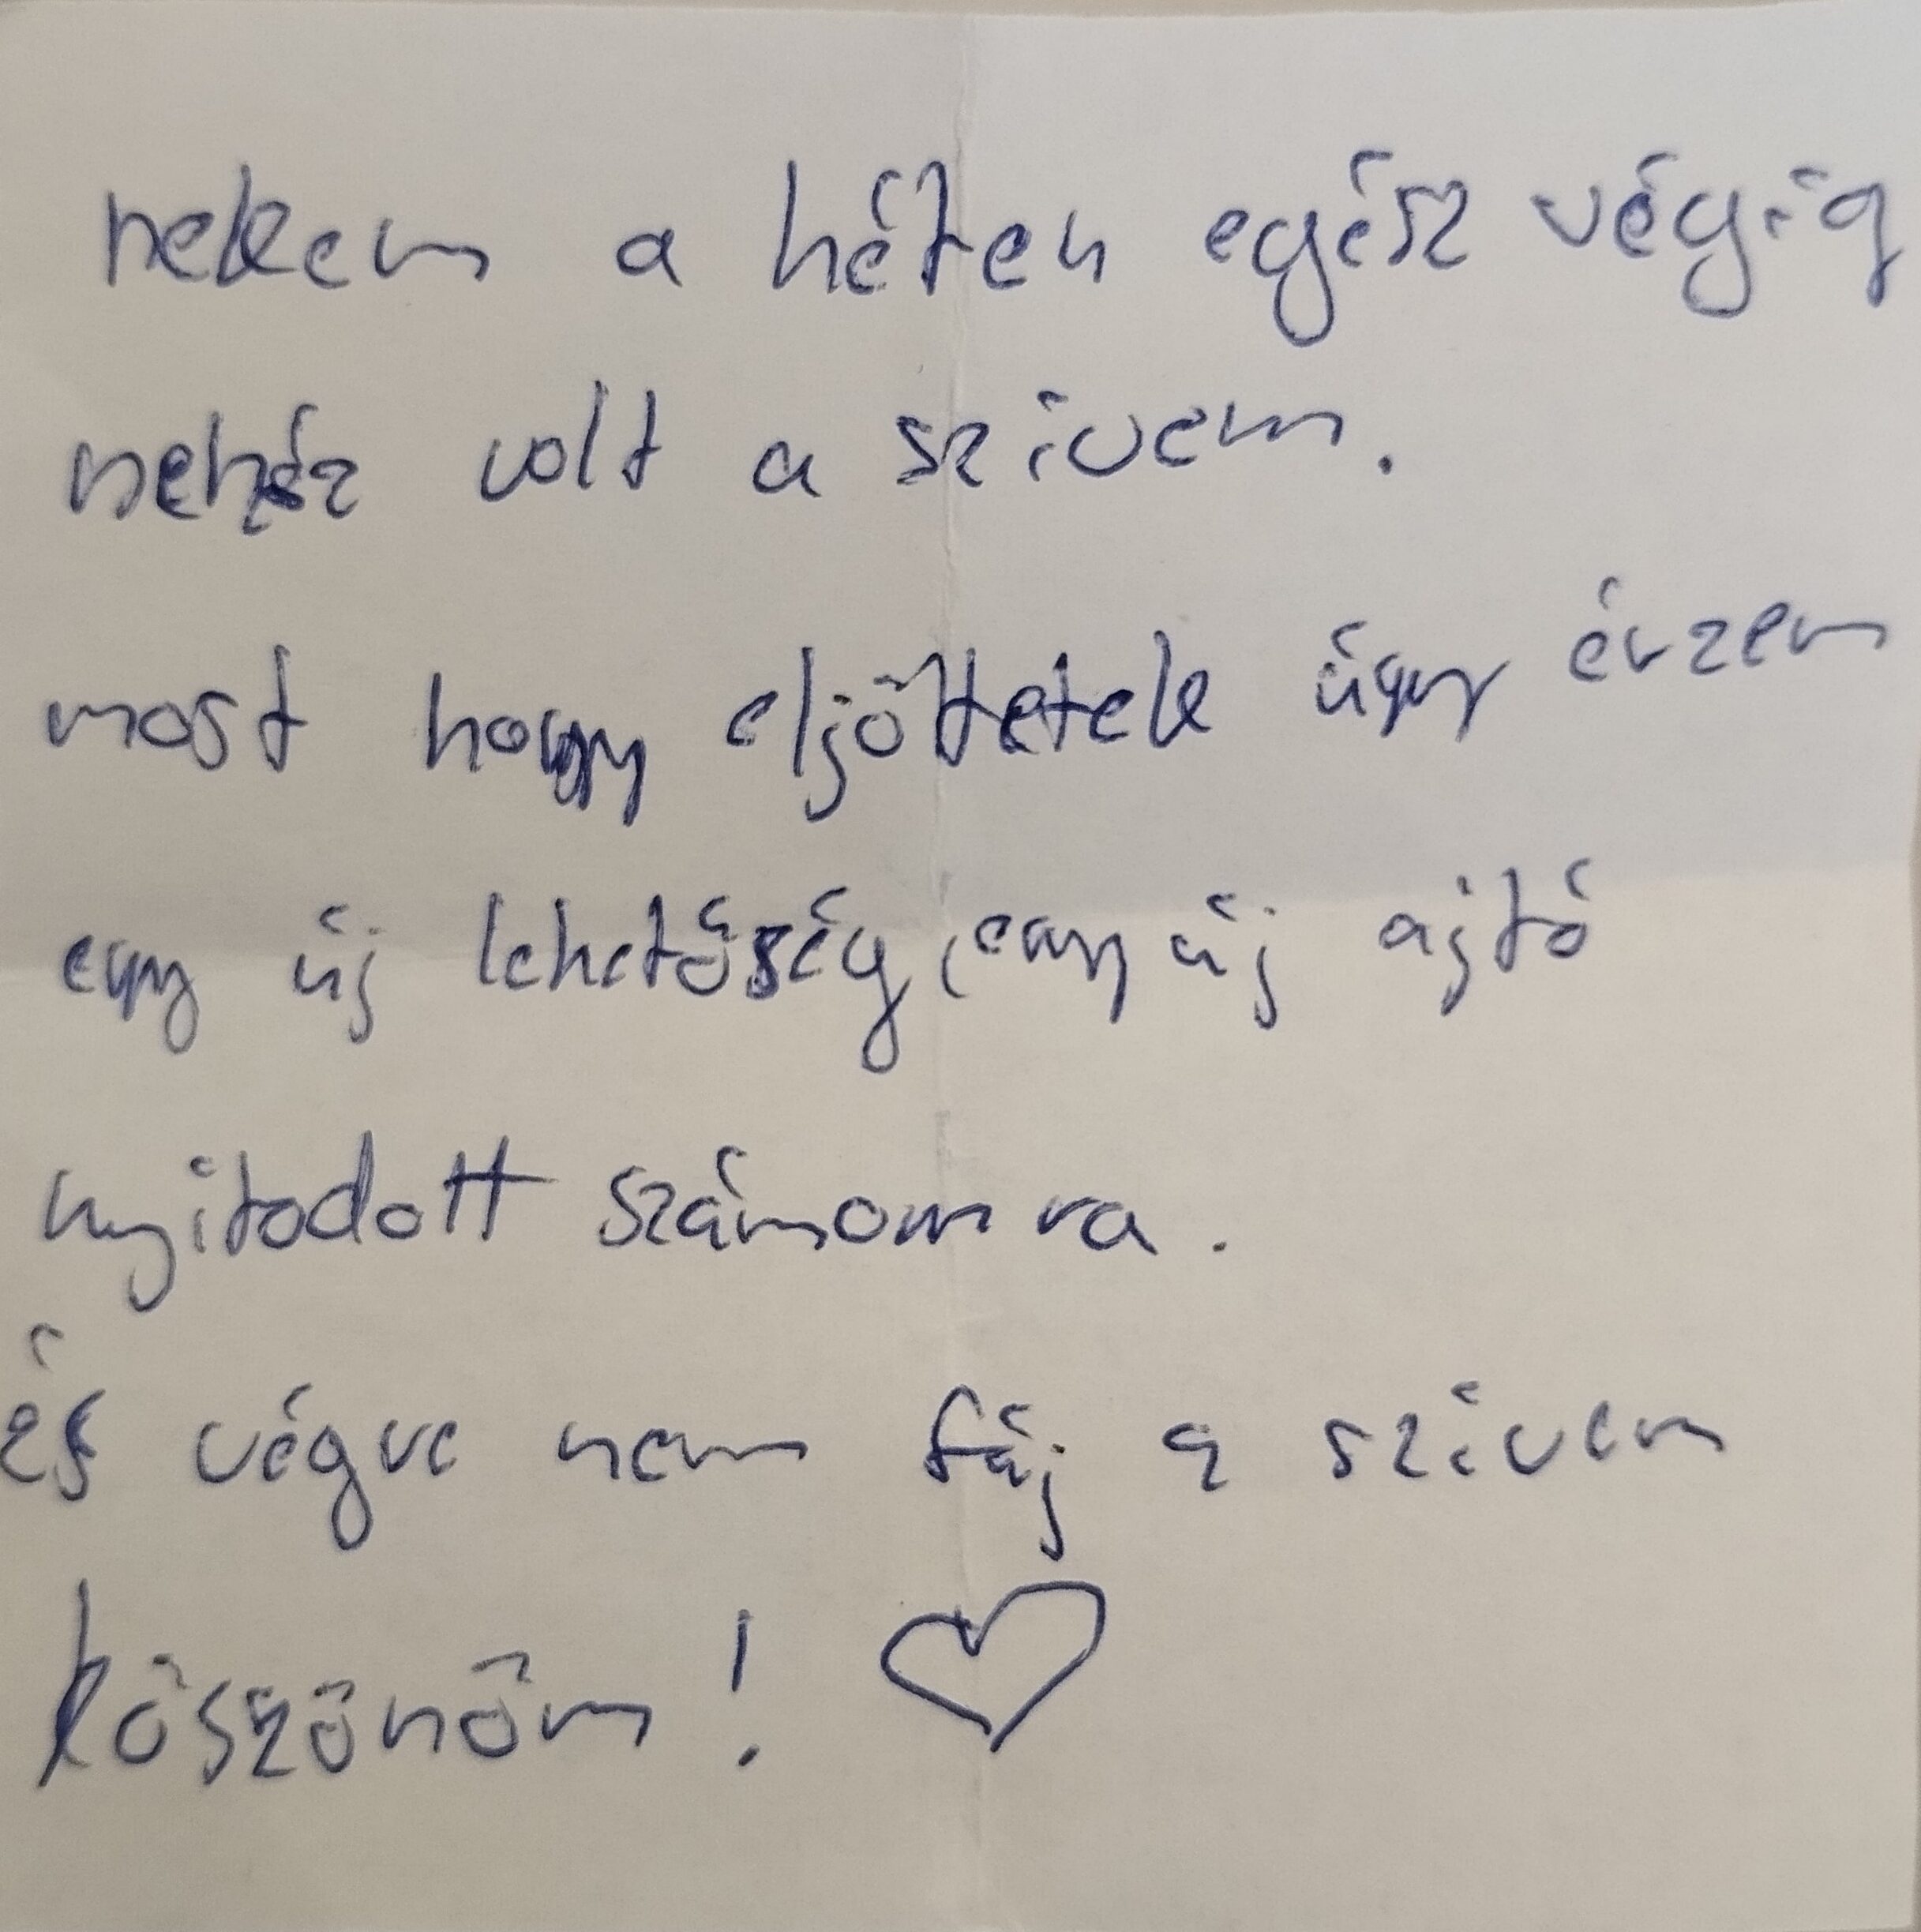 nekem a héten egész végig
nehéz volt a szívem.
most hogy eljöttetek úgy érzem
egy új lehetőség, egy új ajtó
nyitodott számomra.
és végre nem fáj a szívem
köszönöm! ♡